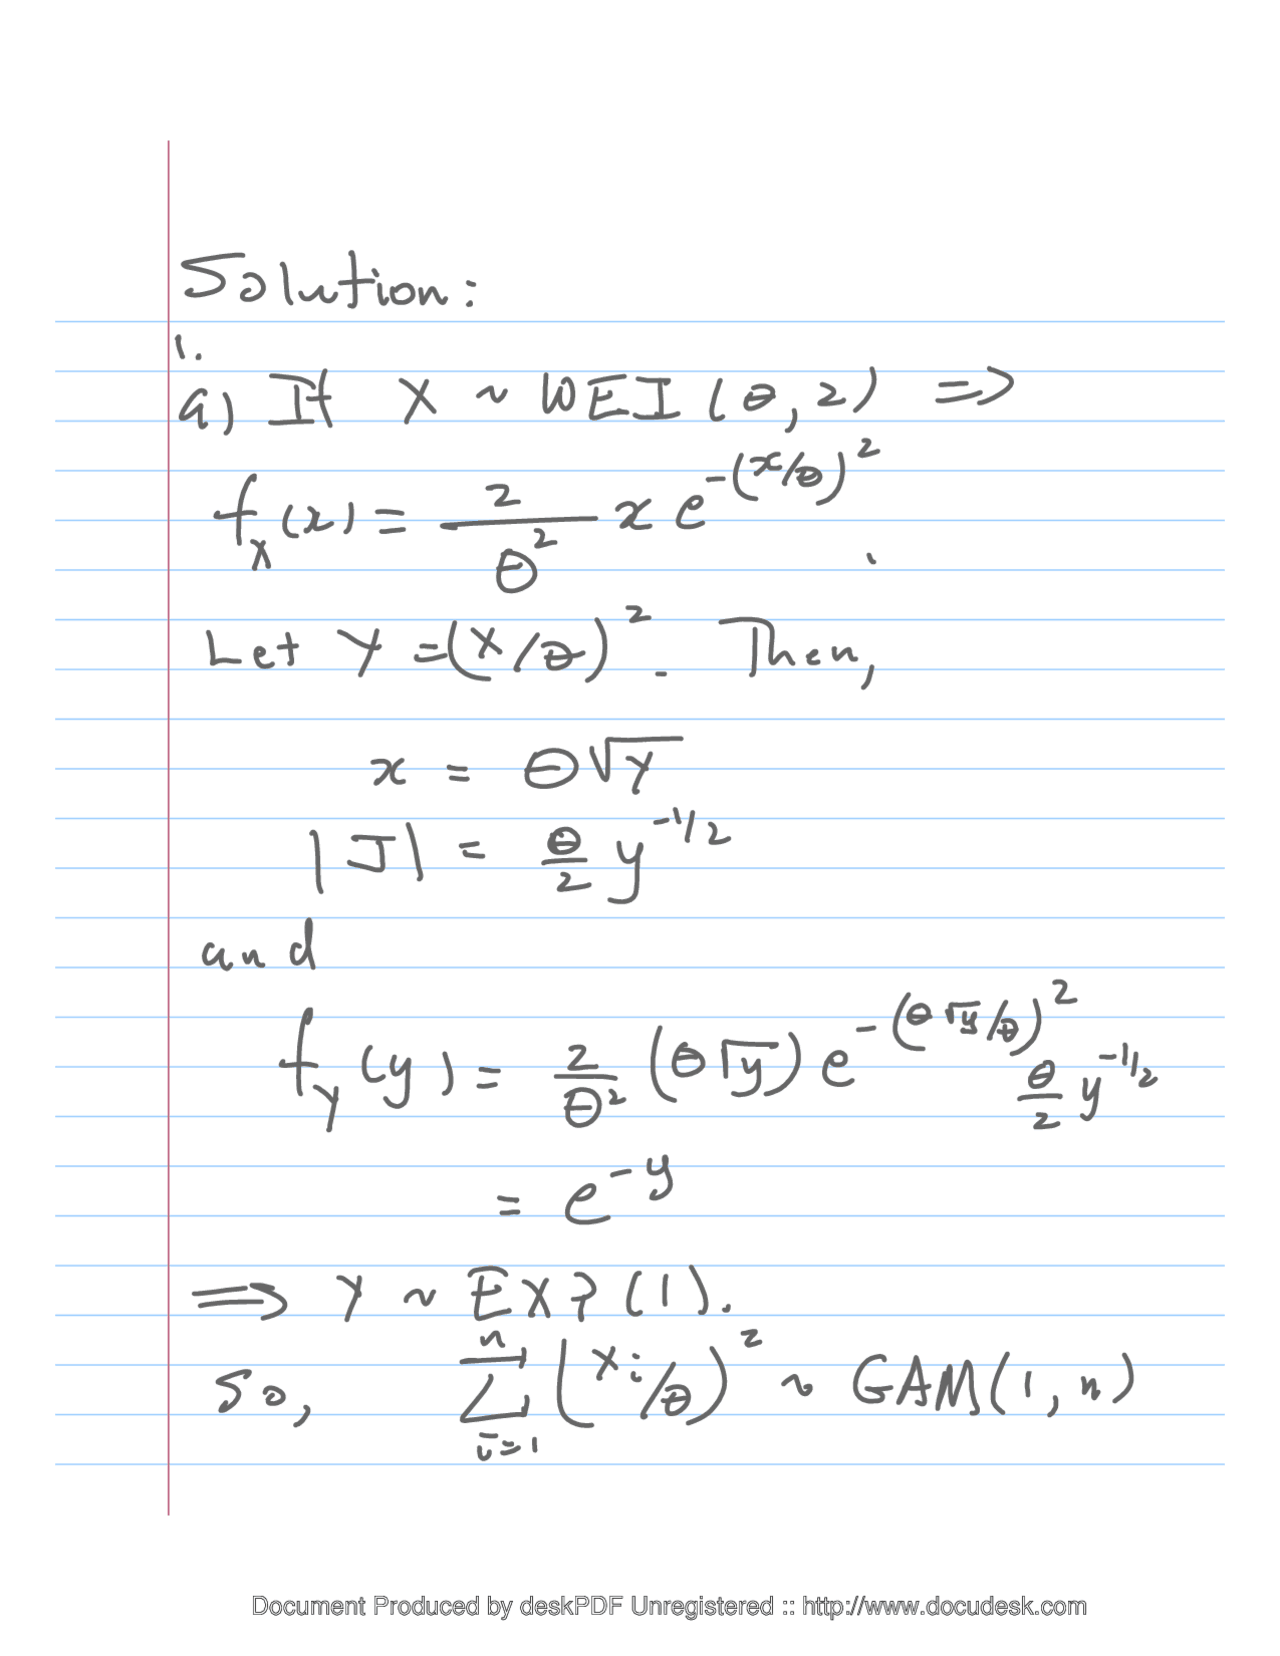 Solution:
1.
a) If X ~ WEI(θ, 2) ⟹
f_X(x) = 2/θ² x e^{-(x/θ)²}.
Let Y = (X/θ)². Then,
x = θ√Y
|J| = θ/2 y^{-1/2}
and
f_Y(y) = 2/θ² (θ√y) e^{-(θ√y/θ)²} θ/2 y^{-1/2}
= e^{-y}
⟹ Y ~ EXP(1).
So, ∑_{i=1}^{n} (X_i/θ)² ~ GAM(1, n)
Document Produced by deskPDF Unregistered :: http://www.docudesk.com